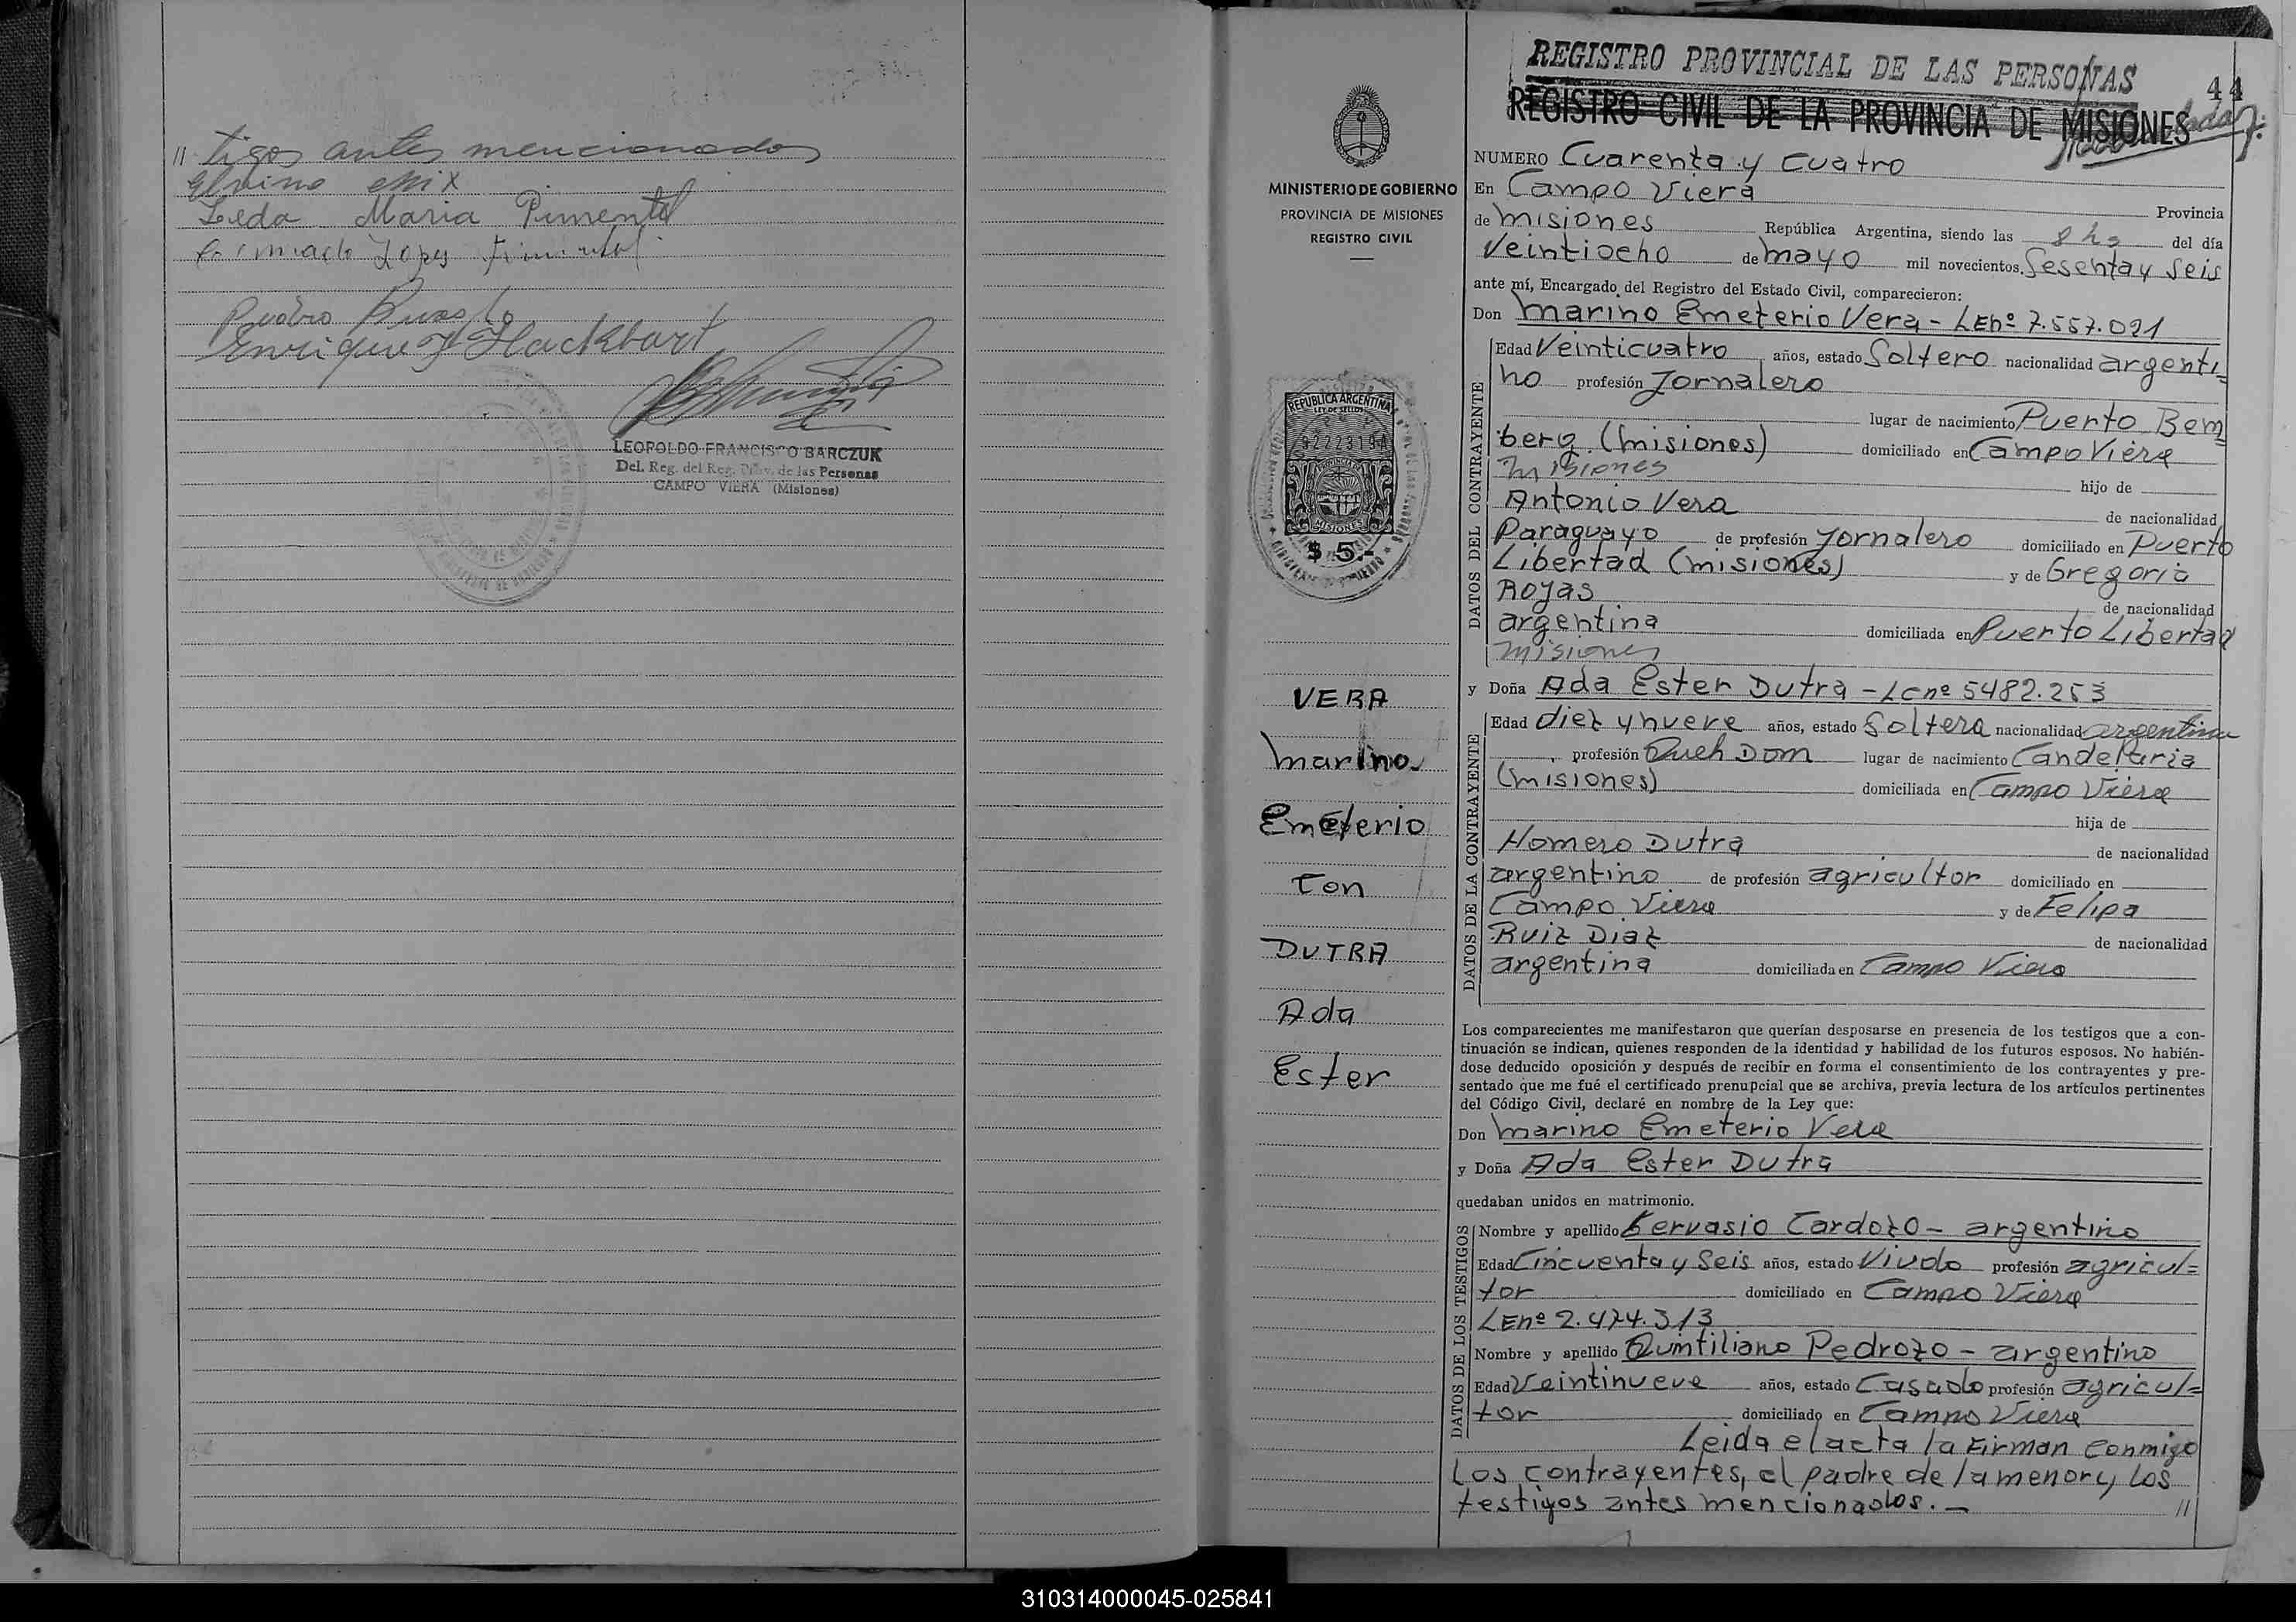 // tigos antes mencionados
Leda Maria Pimentel
Lopes Pimentel
Pedro
Enrique Hackbart
LEOPOLDO FRANCISCO BARCZUK
Del. Reg. del Reg. Prov. de las Personas
CAMPO VIERA (Misiones)
MINISTERIO DE GOBIERNO
PROVINCIA DE MISIONES
REGISTRO CIVIL
REPUBLICA ARGENTINA
LEY DE SELLOS
MISIONES
$ 5.-
VERA
Marino
Emeterio
Con
DUTRA
Ada
Ester
REGISTRO PROVINCIAL DE LAS PERSONAS
44
REGISTRO CIVIL DE LA PROVINCIA DE MISIONES
NUMERO Cuarenta y Cuatro
En Campo Viera
Provincia
de misiones República Argentina, siendo las 8 hs del día
Veintiocho de mayo mil novecientos Sesenta y Seis
ante mí, Encargado del Registro del Estado Civil, comparecieron:
Don Marino Emeterio Vera - LEnº 7.557.021
DATOS DEL CONTRAYENTE
Edad Veinticuatro años, estado Soltero nacionalidad argenti=
no profesión Jornalero
lugar de nacimiento Puerto Bem=
berg (misiones) domiciliado en Campo Viera
Misiones hijo de
Antonio Vera de nacionalidad
Paraguayo de profesión Jornalero domiciliado en Puerto
Libertad (misiones) y de Gregoria
Rojas de nacionalidad
argentina domiciliada en Puerto Libertad
misiones
y Doña Ada Ester Dutra - Lcnº 5482.253
DATOS DE LA CONTRAYENTE
Edad diez y nueve años, estado Soltera nacionalidad argentina
profesión Queh Dom lugar de nacimiento Candelaria
(misiones) domiciliada en Campo Viera
hija de
Homero Dutra de nacionalidad
argentino de profesión agricultor domiciliado en
Campo Viera y de Felipa
Ruiz Diaz de nacionalidad
argentina domiciliada en Campo Viera
Los comparecientes me manifestaron que querían desposarse en presencia de los testigos que a con-
tinuación se indican, quienes responden de la identidad y habilidad de los futuros esposos. No habién-
dose deducido oposición y después de recibir en forma el consentimiento de los contrayentes y pre-
sentado que me fué el certificado prenupcial que se archiva, previa lectura de los artículos pertinentes
del Código Civil, declaré en nombre de la Ley que:
Don Marino Emeterio Vera
y Doña Ada Ester Dutra
quedaban unidos en matrimonio.
DATOS DE LOS TESTIGOS
Nombre y apellido Gervasio Cardozo - argentino
Edad Cincuenta y Seis años, estado Viudo profesión agricul=
tor domiciliado en Campo Viera
LEnº 2.474.313
Nombre y apellido Quintiliano Pedrozo - argentino
Edad Veintinueve años, estado Casado profesión agricul=
tor domiciliado en Campo Viera
Leida el acta la Firman conmigo
los contrayentes, el padre de la menor y los
testigos antes mencionados. - //
310314000045-025841